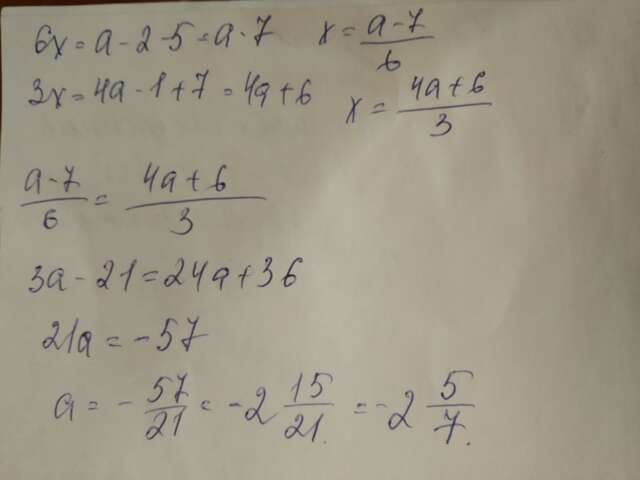 6x = a - 2 - 5 = a - 7    x = (a - 7)/6
3x = 4a - 1 + 7 = 4a + 6    x = (4a + 6)/3
(a - 7)/6 = (4a + 6)/3
3a - 21 = 24a + 36
21a = -57
a = - 57/21 = -2 15/21 = -2 5/7.